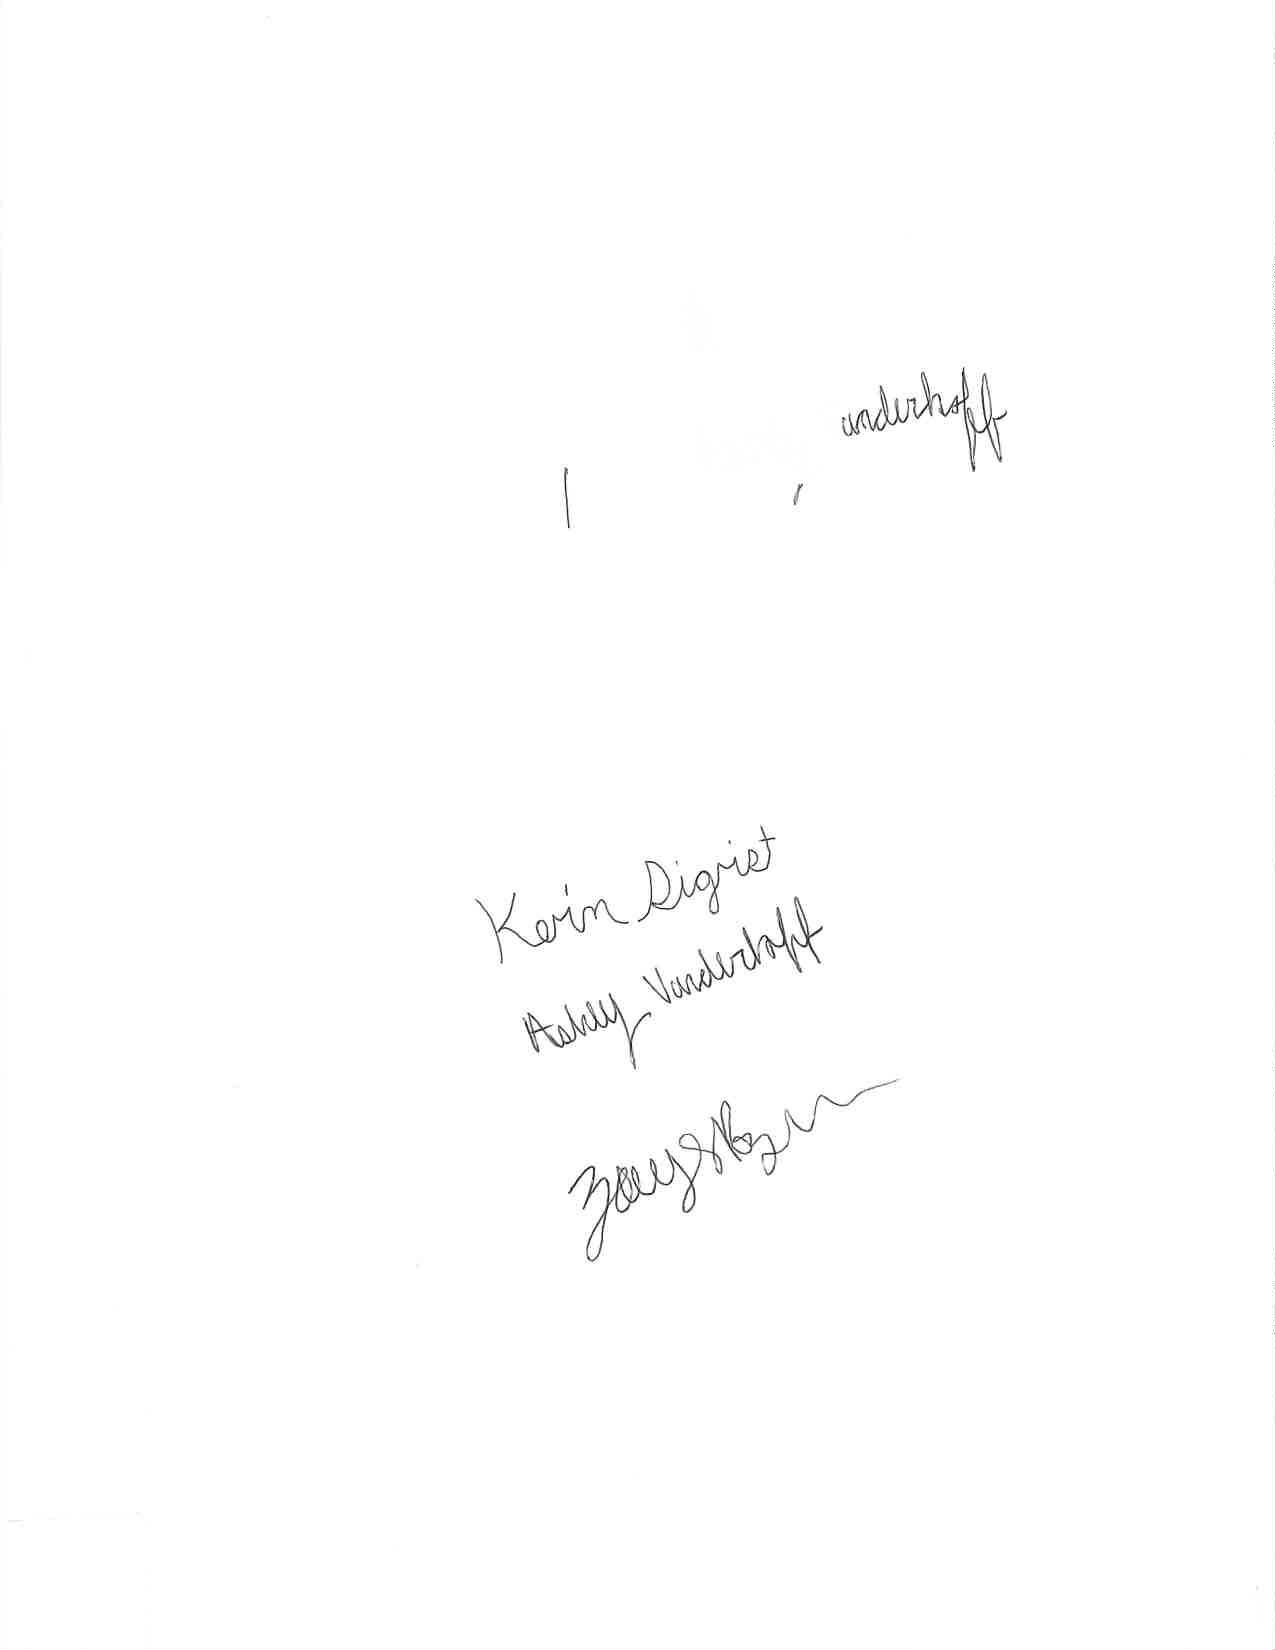 anderhoff
Kevin Sigrist
Ashley Vanderhoff
Zoey